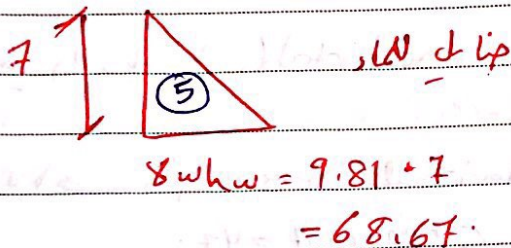 7
5
ضغط الماء
γw hw = 9.81 * 7
= 68.67